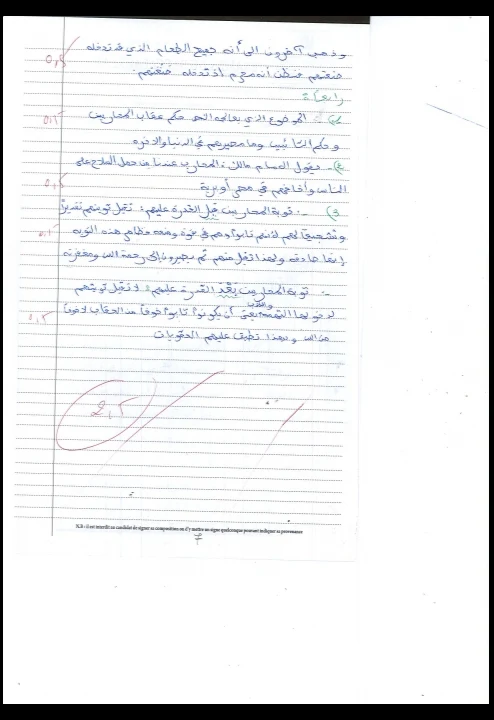 وذهب آخرون الى أنه جميع الطعام الذي قد تدخله
صنعتهم فنظن أنه محرم اذ تدخله صنعتهم.
0,5
رابعا:
- الموضوع الذي يعالجه النص حكم عقاب المحاربين
0,5
وحكم التائبين وما مصيرهم في الدنيا والآخرة
- يقول الامام مالك: المحارب عندنا من حمل السلاح على
الناس وأخافهم في مصر أو برية
0,5
- توبة المحاربين قبل القدرة عليهم: تقبل توبتهم تقديراً
وتشجيعا لهم لأنهم تابوا وهم في قوة ومنعة هذه التوبة
0,5
إنها صادقة ولهذا تقبل منهم ثم يصيرون إلى رحمة الله ومغفرته
- توبة المحاربين بَعْدَ القدرة عليهم: لا تقبل توبتهم
التهمة أن يكونوا تابوا خوفاً من العقاب لا خوفاً
0,5
من الله ولهذا تطبق عليهم العقوبات
2,5
N.B : il est interdit au candidat de signer sa composition ou d'y mettre un signe quelconque pouvant indiquer sa provenance
7